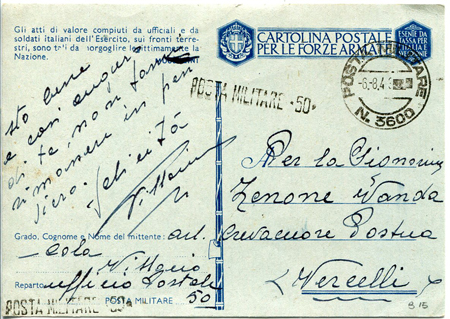 Gli atti di valore compiuti da ufficiali e da
soldati italiani dell'Esercito, sui fronti terre-
stri, sono tali da inorgoglire legittimamente la
Nazione.
CARTOLINA POSTALE
PER LE FORZE ARMATE
ESENTE DA
TASSA PER
L'ITALIA E
POSTA MILITARE
-6.-8.4
N. 3600
POSTA MILITARE - 50*
e cari auguri
di te, non
rimanere in pen
siero. Felicità
Vittorio
Per la Signorina
Zenone Wanda
Crevacuore Postua
(Vercelli)
Grado, Cognome e Nome del mittente:
Cola
Vittorio
Reparto
Ufficio Postale
POSTA MILITARE 50
POSTA MILITARE - 50*
B 15